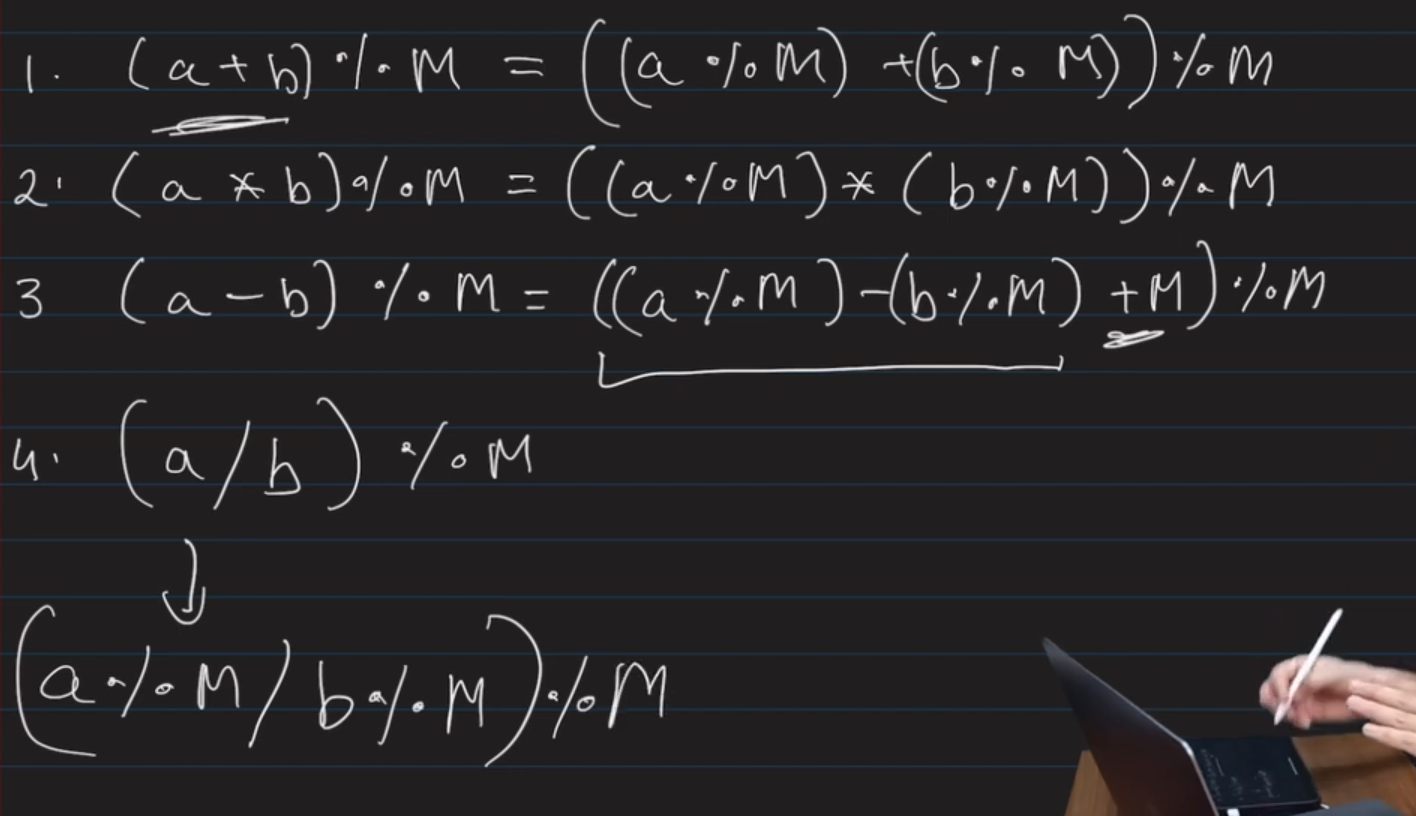 1. (a + b) % M = ((a % M) + (b % M)) % M
2. (a * b) % M = ((a % M) * (b % M)) % M
3 (a - b) % M = ((a % M) - (b % M) + M) % M
4. (a / b) % M
(a % M / b % M) % M